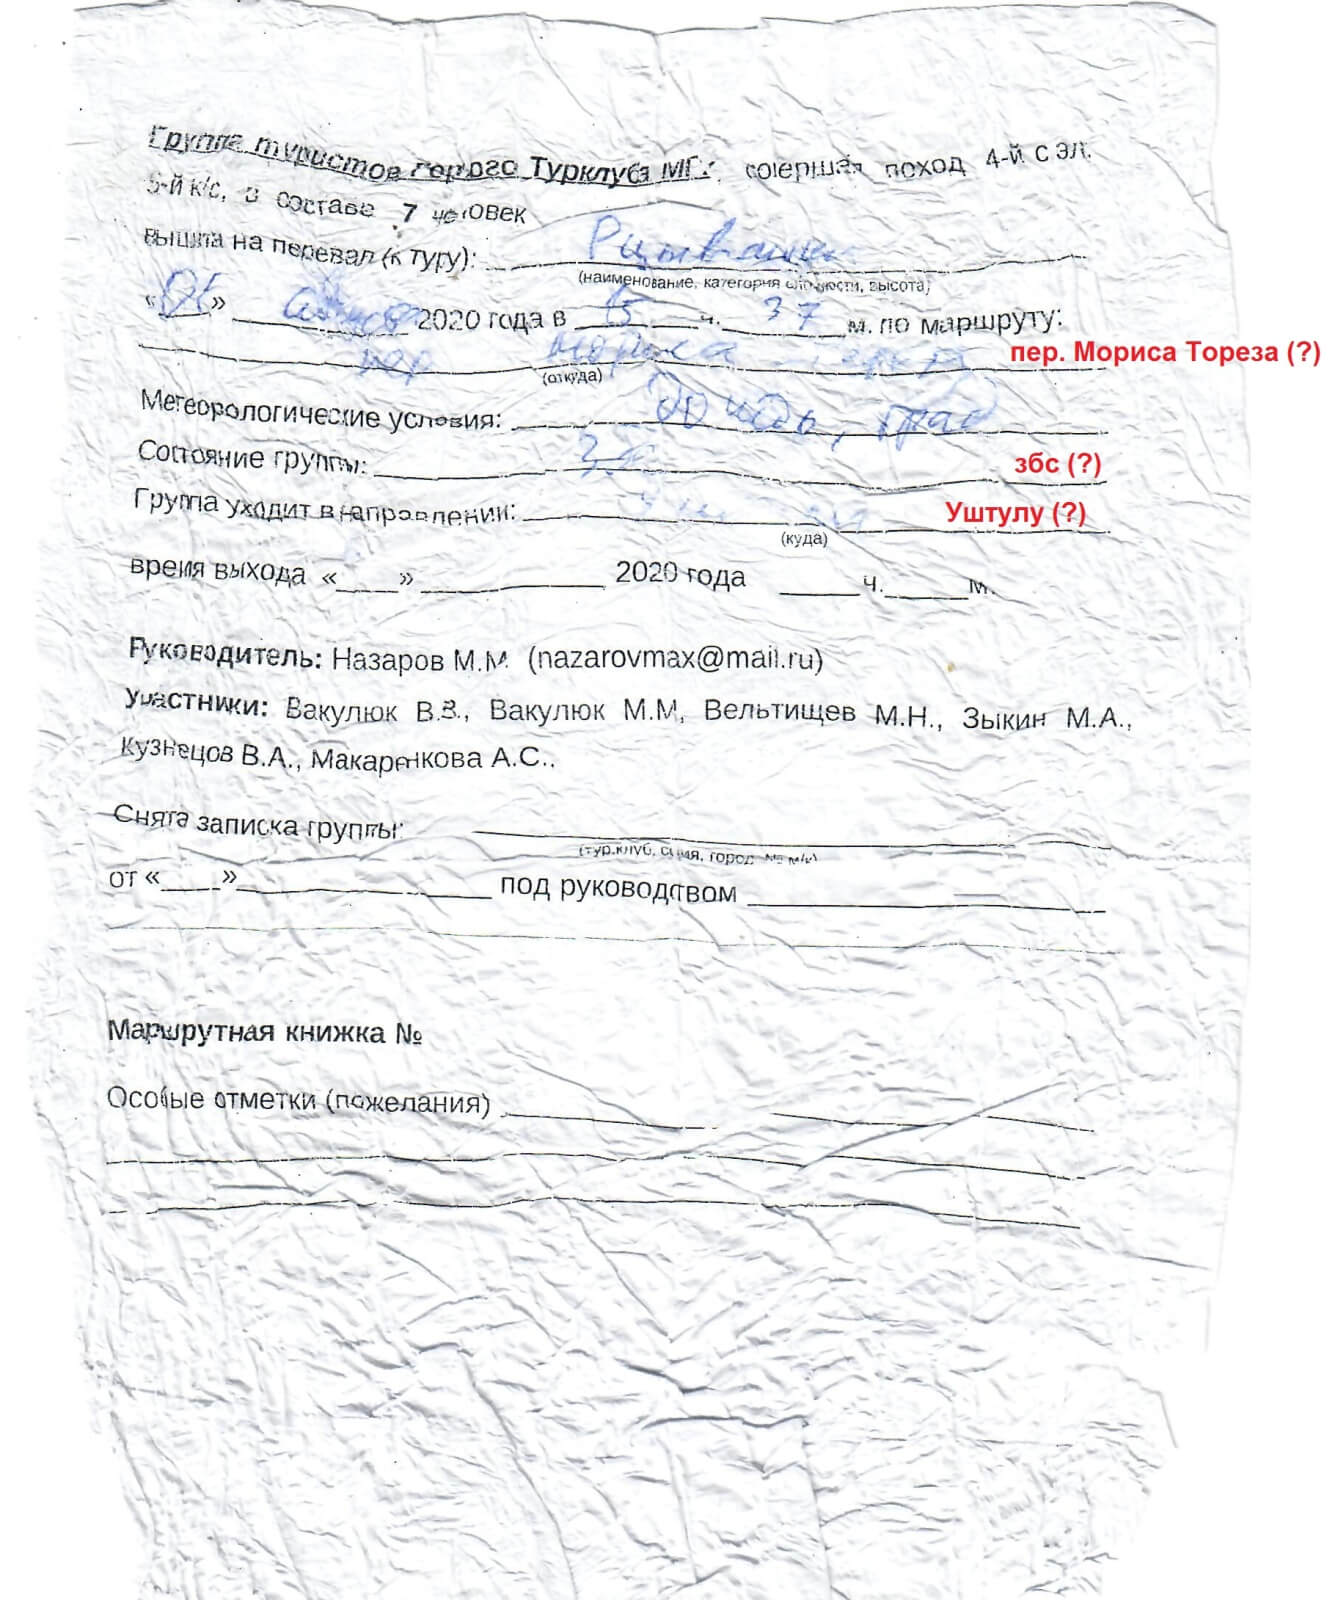 Группа туристов горного Турклуба МГУ, совершая поход 4-й с эл.
5-й к/с, в составе 7 человек
вышла на перевал (к туру):
(наименование, категория сложности, высота)
«05» августа 2020 года в 15 ч. 37 м. по маршруту:
пер Мориса Тореза пер. Мориса Тореза (?)
(откуда)
Метеорологические условия: Дождь, град
Состояние группы: збс (?)
Группа уходит в направлении: Уштулу (?)
(куда)
время выхода «____» ____________ 2020 года _____ч._____м.
Руководитель: Назаров М.М. (nazarovmax@mail.ru)
Участники: Вакулюк В.В., Вакулюк М.М, Вельтищев М.Н., Зыкин М.А.,
Кузнецов В.А., Макаренкова А.С..
Снята записка группы:
(тур.клуб, секция, город, № м/к)
от «____»________________ под руководством ______________________
Маршрутная книжка №
Особые отметки (пожелания)